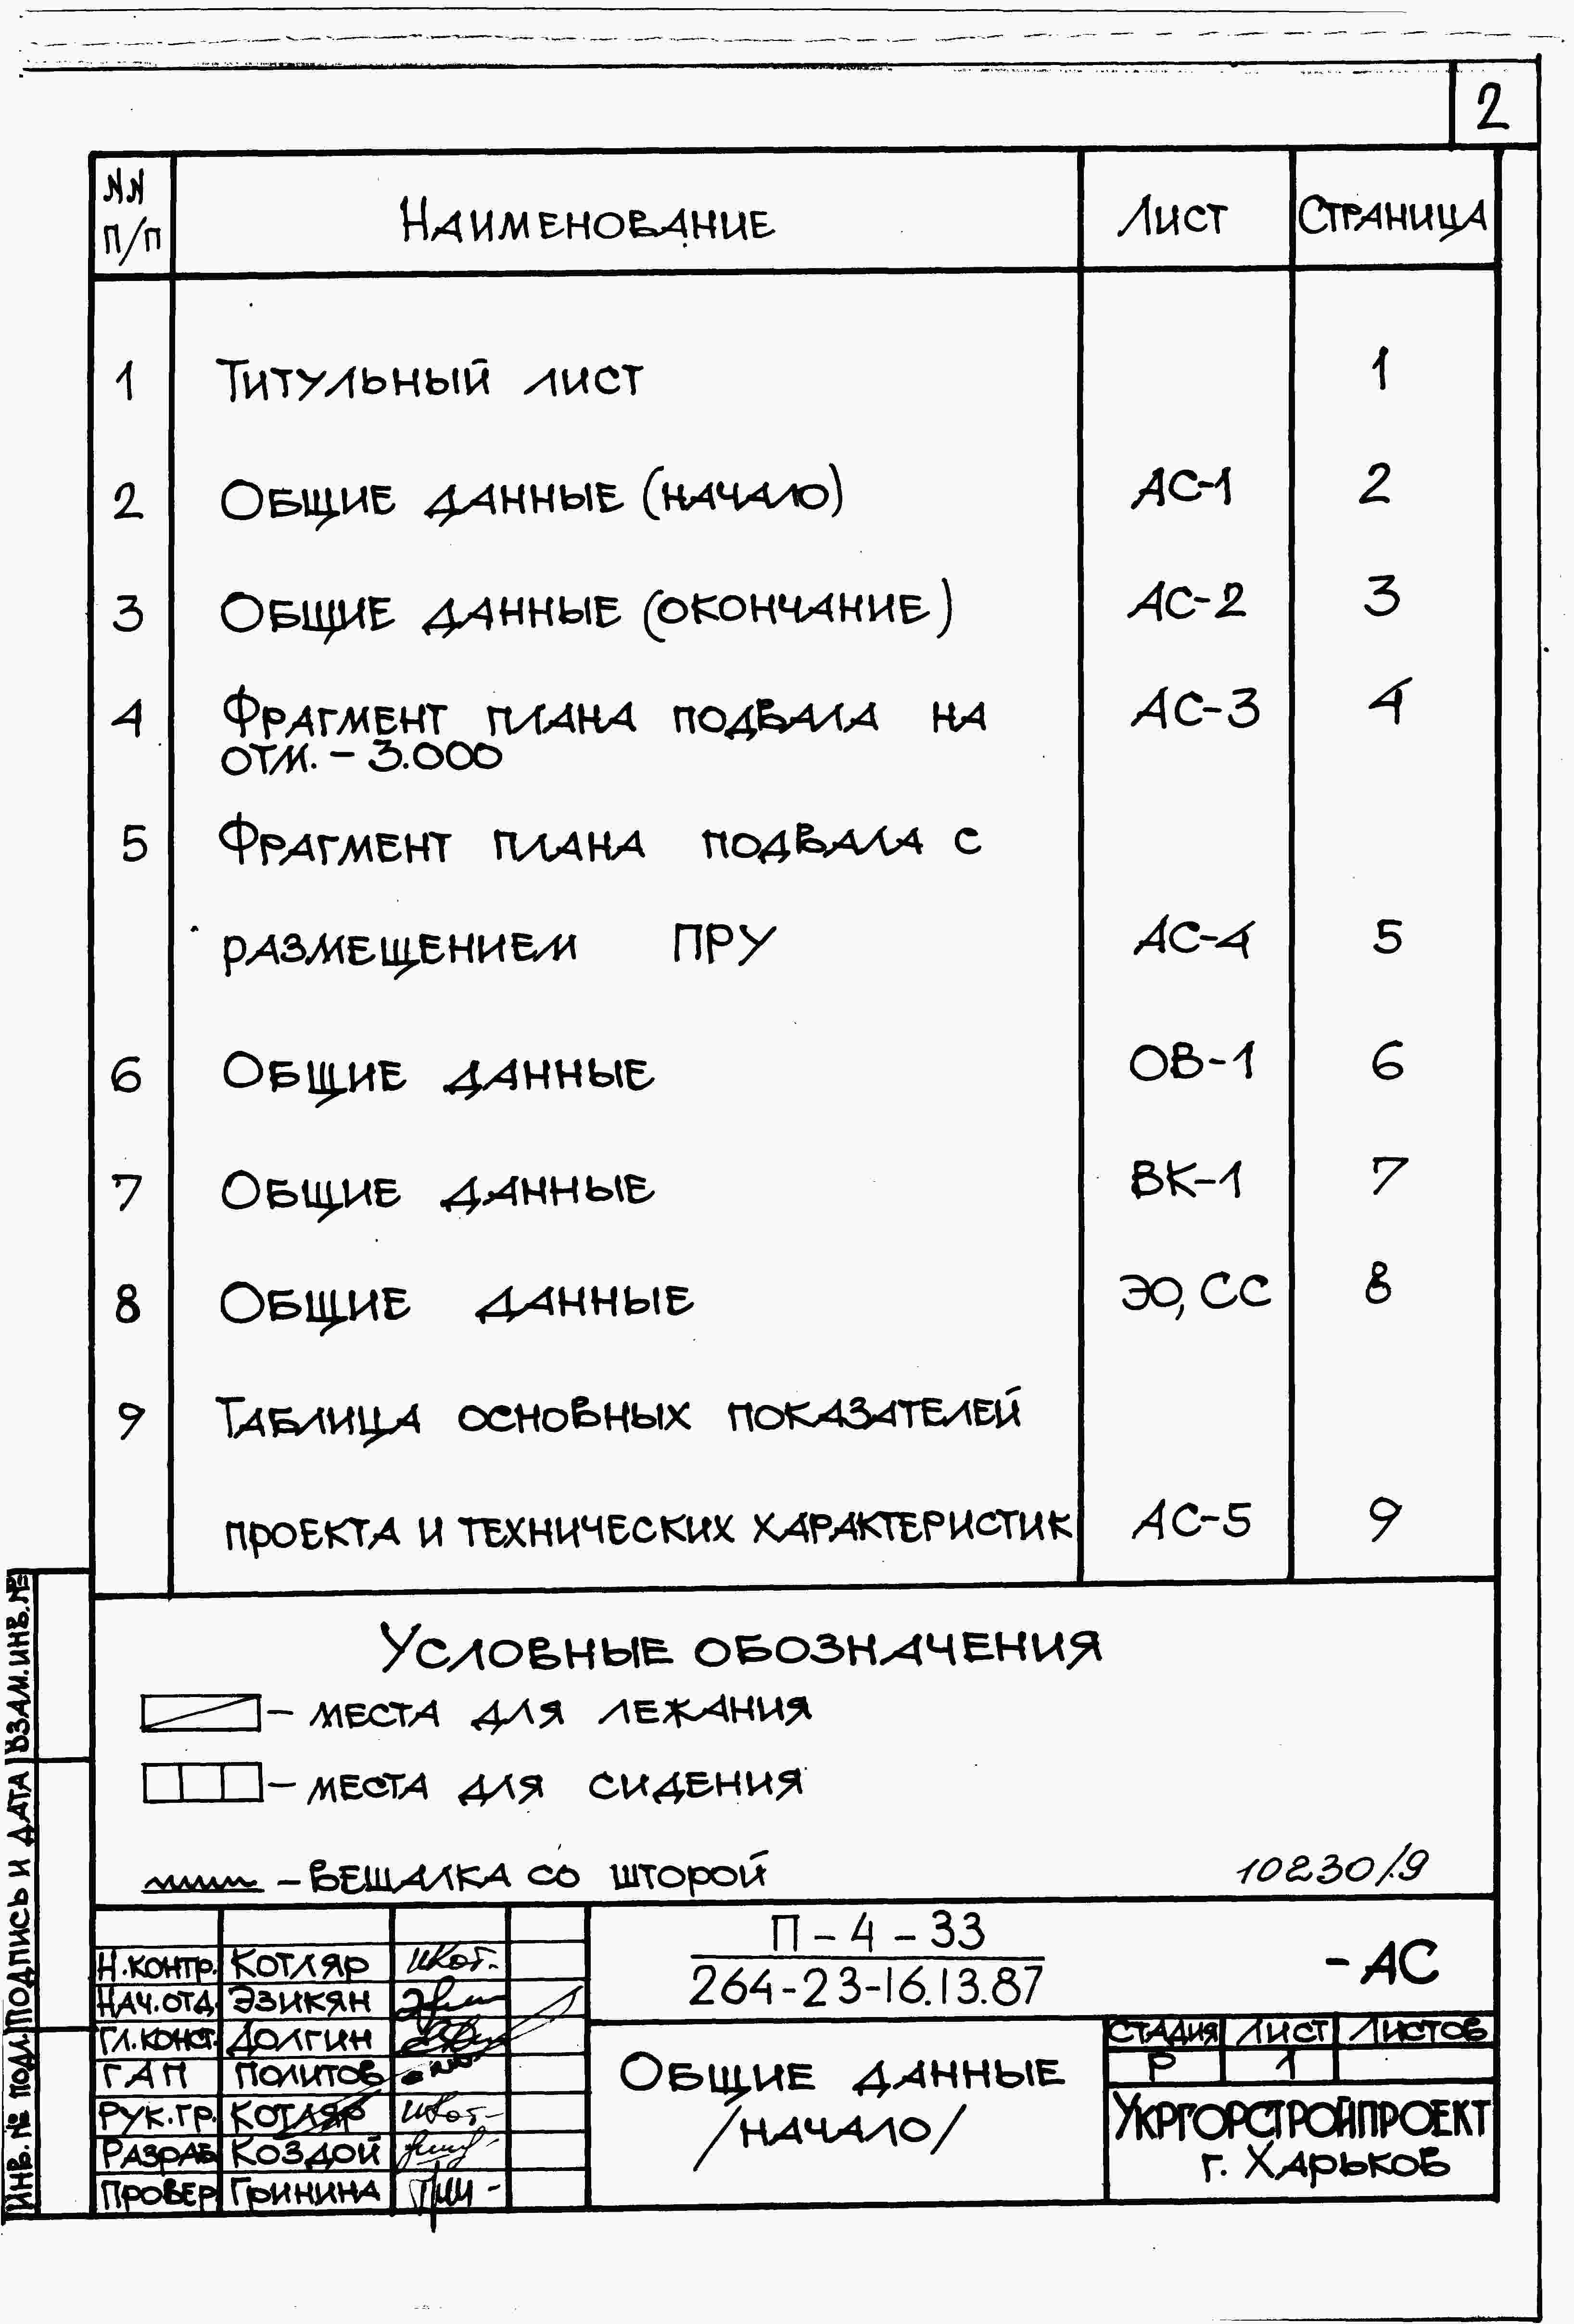 2
NN п/п Наименование Лист Страница
1 Титульный лист 1
2 Общие данные (начало) АС-1 2
3 Общие данные (окончание) АС-2 3
4 Фрагмент плана подвала на АС-3 4
отм. - 3.000
5 Фрагмент плана подвала с
размещением ПРУ АС-4 5
6 Общие данные ОВ-1 6
7 Общие данные ВК-1 7
8 Общие данные ЭО, СС 8
9 Таблица основных показателей
проекта и технических характеристик АС-5 9
Условные обозначения
- места для лежания
- места для сидения
- вешалка со шторой
10230/9
П - 4 - 33
264-23-16.13.87
- АС
Н.контр. Котляр
Нач.отд. Эзикян
Гл.конст. Долгин
ГАП Политов
Рук.гр. Котляр
Разраб. Коздой
Провер. Гринина
Общие данные
/начало/
Стадия Лист Листов
Р 1
Укргорстройпроект
г. Харьков
Инв. № подл. Подпись и дата Взам.инв.№